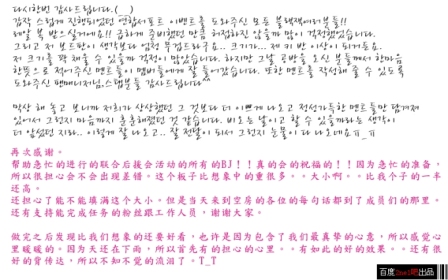 다시한번 감사드립니다.(__)
갑작 스럽게 진행되었던 연합서포트 이벤트를 도와주신 모든 블랙젝여러분들!!
레알 복 받으실거에요!! 급하게 준비했던 만큼 허접하진 않을까 많이 걱정했었습니다.
그리고 저 보드판이 생각보다 엄청 무겁드라구요.. 크기가... 제 키 반 이상이 되거든요.
저 크기를 꽉 채울 수 있을까 걱정이 많았습니다. 하지만 그날 공방을 오신 분들께서 한마음
한뜻으로 적어주신 멘트들이 멤버들에게 잘 들어갔습니다. 또한 멘트를 작성해 줄 수 있도록
도와주신 팬매니저님.스텝분들 감사드립니다

막상 해 놓고 보니까 저희가 상상했던 그 것보다 더 이쁘게 나오고 정성가득한 멘트들만 담겨져
있어서 그런지 마음까지 훈훈해졌던 것 같습니다. 비오는 날이고 할 수 있을까라는 생각이
더 앞섰던 지라.. 이렇게 잘 나오고.. 잘 전달이 되서 그런지 눈물이 다 나오네요ㅠ_ㅠ
再次感谢。
帮助急忙的进行的联合后援会活动的所有的BJ！！真的会的祝福的！！因为急忙的准备，
所以很担心会不会出现差错。这个板子比想象中的重很多。。大小啊。。比我个子的一半
还高。
还担心了能不能填满这个大小。但是当天来到空房的各位的每句话都到了成员们的那里。
还有支持能完成任务的粉丝跟工作人员，谢谢大家。
做完之后发现比我们想象的还要好看，也许是因为包含了我们最真挚的心意，所以感觉心
里暖暖的。因为天还在下雨，所以首先有的担心的心里。。有如此的好的效果。。还有很
好的背传达，所以不知不觉的流泪了。T_T
百度2ne1吧出品